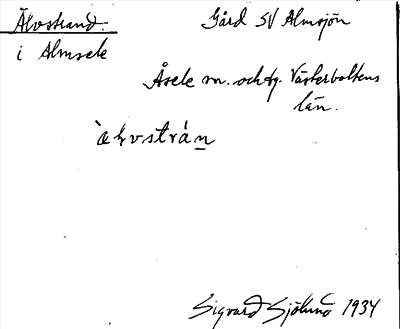 Älvstrand. Gård SV Almsjön
i Almsele
Åsele sn. och tg. Västerbottens
län.
`ælvstrán
Sigvard Sjölund 1934